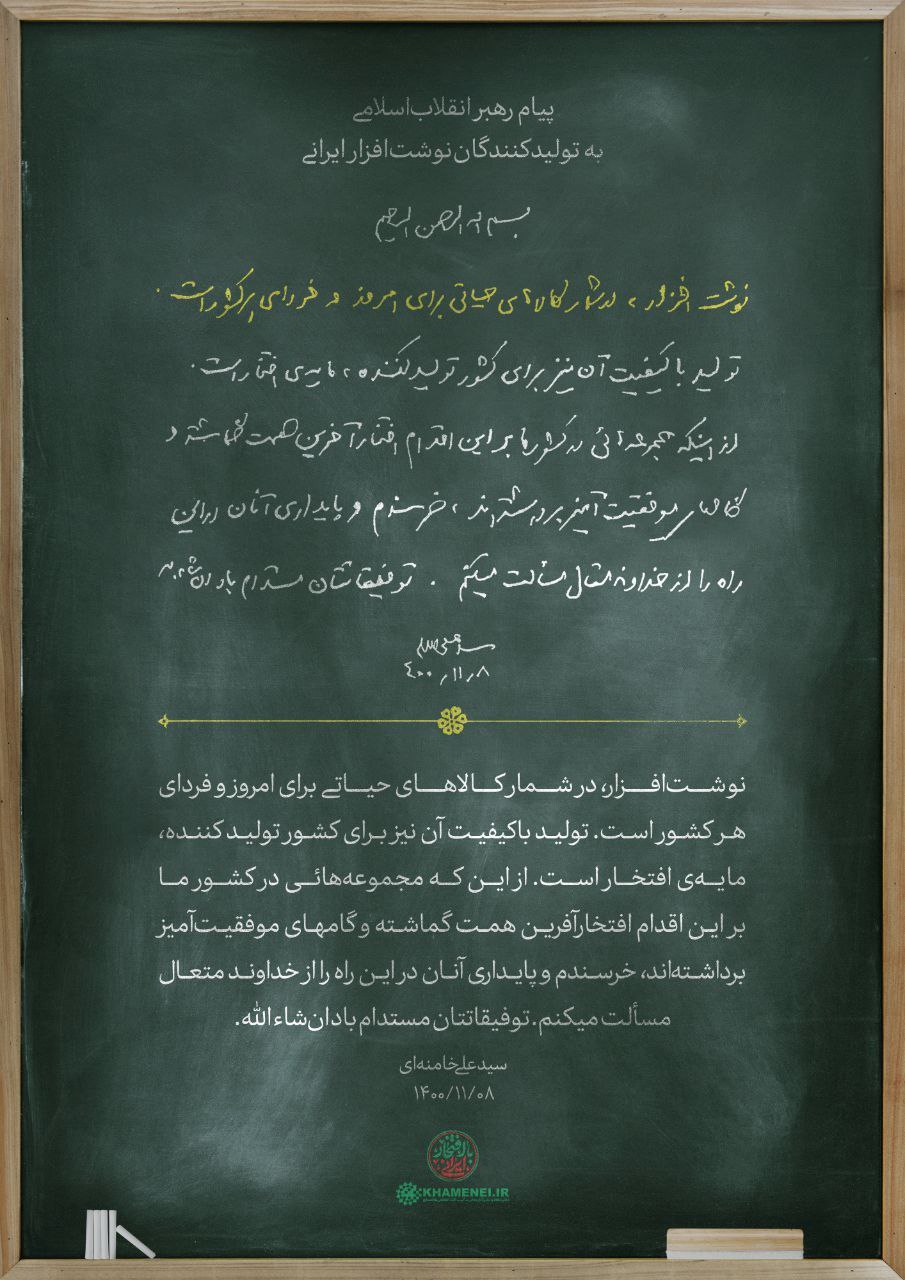 پیام رهبر انقلاب اسلامی
به تولیدکنندگان نوشت‌افزار ایرانی
بسم الله الرحمن الرحیم
نوشت افزار، در شمار کالاهای حیاتی برای امروز و فردای هر کشور است.
تولید با کیفیت آن نیز برای کشور تولید کننده، مایه‌ی افتخار است.
از اینکه مجموعه‌هائی در کشور ما بر این اقدام افتخارآفرین همت گماشته و
گامهای موفقیت آمیز برداشته‌اند، خرسندم و پایداری آنان در این
راه را از خداوند متعال مسألت میکنم. توفیقاتتان مستدام باد ان‌شاءالله
سید علی خامنه‌ای
۴۰۰/۱۱/۸
نوشت‌افزار، در شمار کالاهای حیاتی برای امروز و فردای
هر کشور است. تولید باکیفیت آن نیز برای کشور تولید کننده،
مایه‌ی افتخار است. از این که مجموعه‌هائی در کشور ما
بر این اقدام افتخارآفرین همت گماشته و گامهای موفقیت‌آمیز
برداشته‌اند، خرسندم و پایداری آنان در این راه را از خداوند متعال
مسألت میکنم. توفیقاتتان مستدام باد ان‌شاءالله.
سیدعلی خامنه‌ای
۱۴۰۰/۱۱/۰۸
با افتخار
ایرانی
KHAMENEI.IR